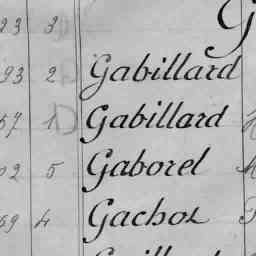 G
23 3
93 2 Gabillard
57 1 Gabillard
02 5 Gaborel
59 4 Gachot